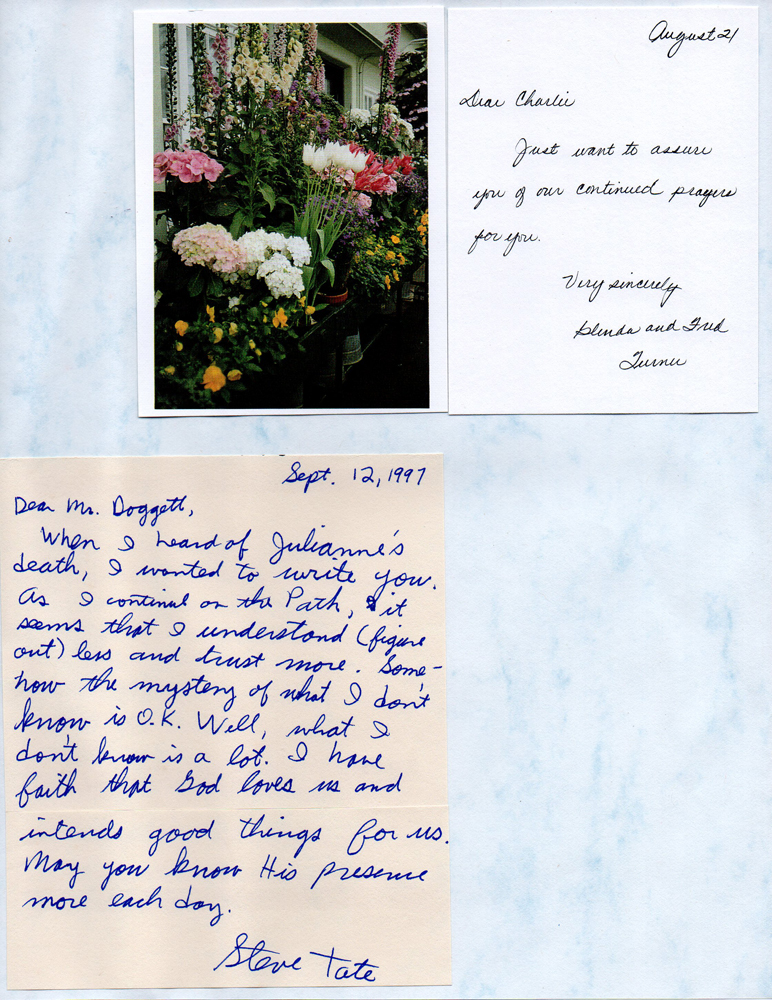 August 21
Dear Charlie
Just want to assure
you of our continued prayers
for you.
Very sincerely
Glenda and Fred
Turner
Sept. 12, 1997
Dear Mr. Doggett,
When I heard of Julianne's
death, I wanted to write you.
As I continue on the Path, it
seems that I understand (figure
out) less and trust more. Some-
how the mystery of what I don't
know is O.K. Well, what I
don't know is a lot. I have
faith that God loves us and
intends good things for us.
May you know His presence
more each day.
Steve Tate